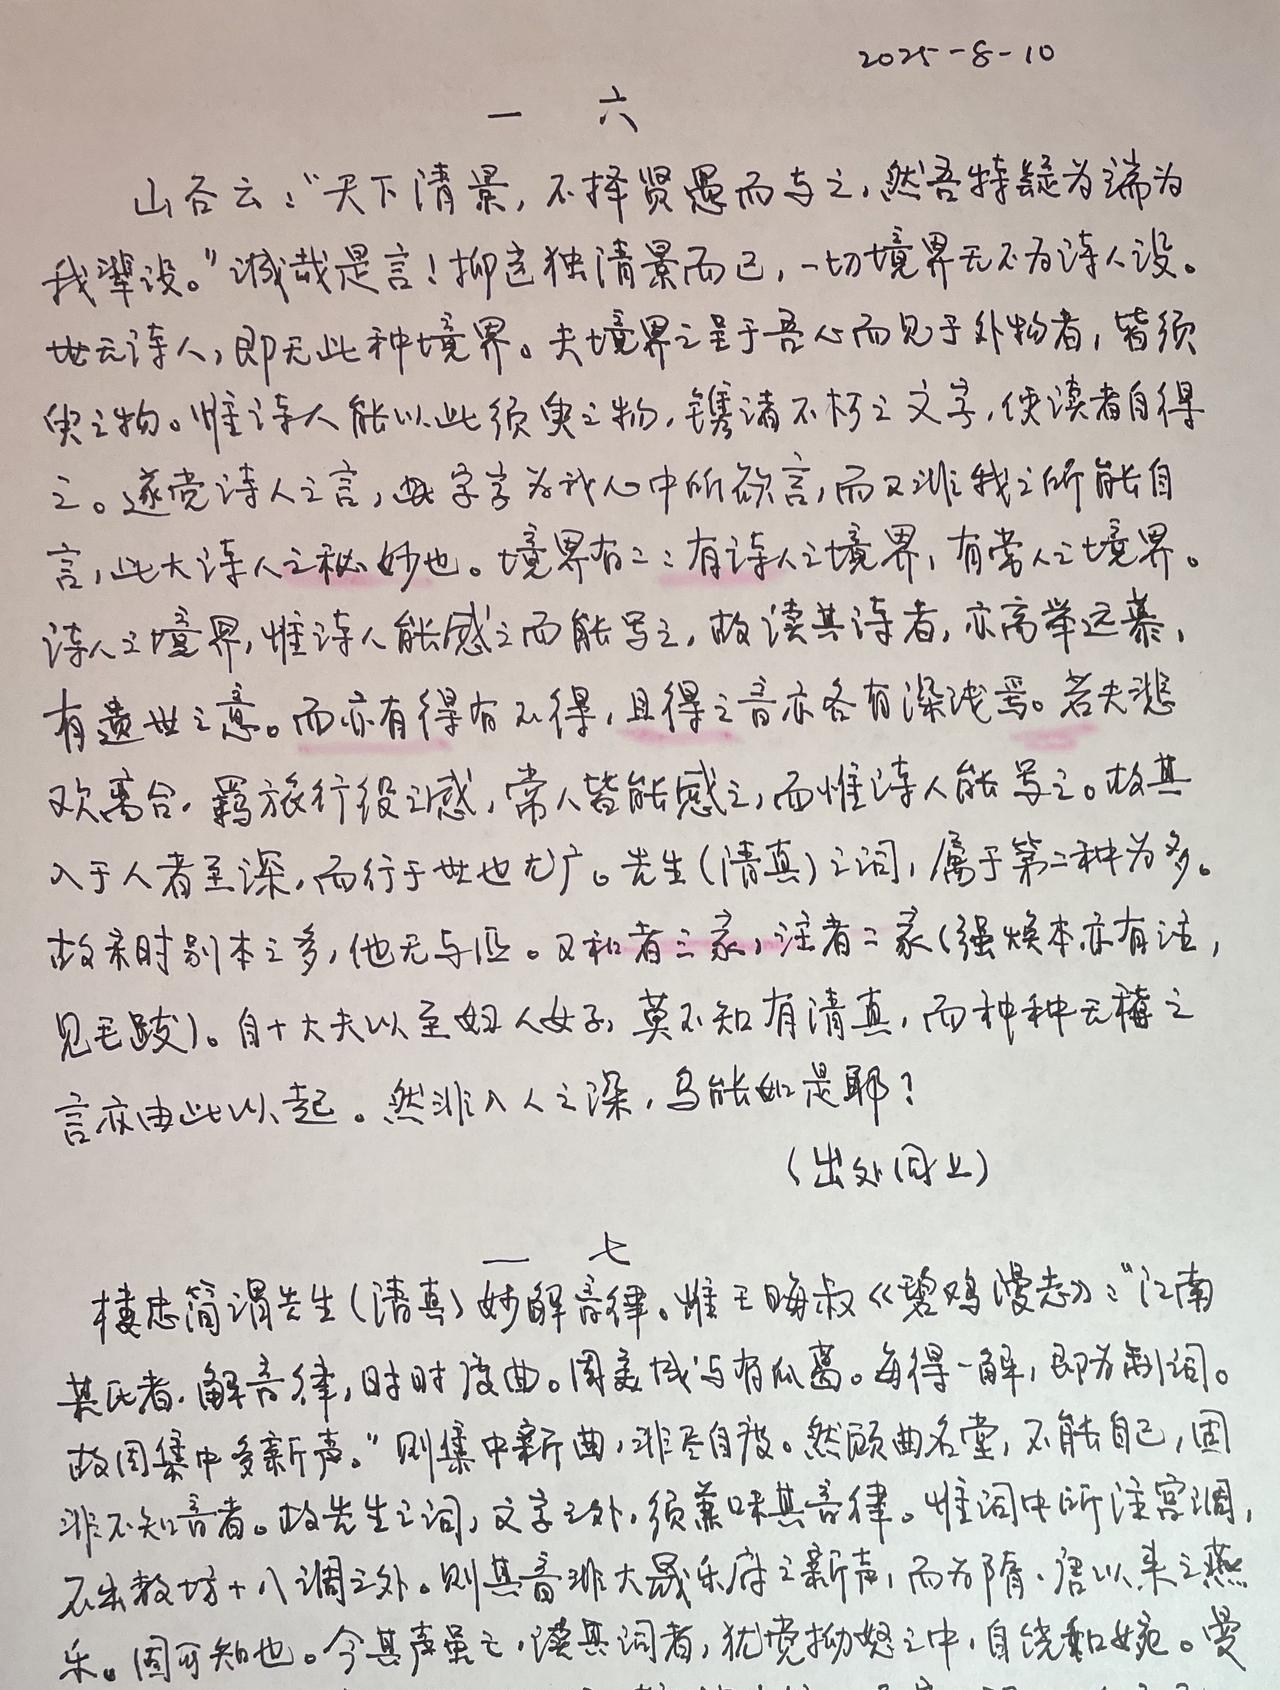 2025-8-10
一 六
山谷云：“天下清景，不择贤愚而与之，然吾特疑为端为
我辈设。”诚哉是言！抑岂独清景而已，一切境界无不为诗人设。
世无诗人，即无此种境界。夫境界之呈于吾心而见于外物者，皆须
臾之物。惟诗人能以此须臾之物，镌诸不朽之文字，使读者自得
之。遂觉诗人之言，字字为我心中所欲言，而又非我之所能自
言，此大诗人之秘妙也。境界有二：有诗人之境界，有常人之境界。
诗人之境界，惟诗人能感之而能写之，故读其诗者，亦高举远慕，
有遗世之意。而亦有得有不得，且得之音亦各有深浅焉。若夫悲
欢离合，羁旅行役之感，常人皆能感之，而惟诗人能写之。故其
入于人者至深，而行于世也尤广。先生（清真）之词，属于第二种为多。
故宋时别本之多，他无与匹。又和者三家，注者二家（强焕本亦有注，
见毛跋）。自士大夫以至妇人女子，莫不知有清真，而种种无稽之
言亦由此以起。然非入人之深，乌能如是耶？
（出处同上）
一 七
楼忠简谓先生（清真）妙解音律。惟王晦叔《碧鸡漫志》：“江南
某氏者，解音律，时时度曲。周美成与有瓜葛。每得一解，即为制词。
故周集中多新声。”则集中新曲，非尽自度。然顾曲名堂，不能自已，固
非不知音者。故先生之词，文字之外，须兼味其音律。惟词中所注宫调，
不出教坊十八调之外。则其音非大晟乐府之新声，而为隋、唐以来之燕
乐。固可知也。今其声虽亡，读其词者，犹觉拗怒之中，自饶和婉。曼